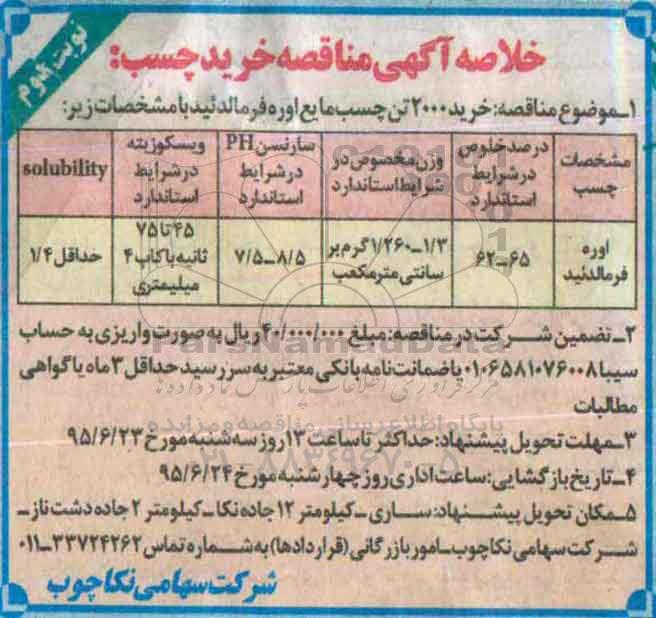 نوبت دوم
خلاصه آگهی مناقصه خرید چسب:
۱ـ موضوع مناقصه: خرید ۲۰۰۰ تن چسب مایع اوره فرمالدئید با مشخصات زیر:
مشخصات چسب
درصد خلوص در شرایط استاندارد
وزن مخصوص در شرایط استاندارد
سارنسن PH در شرایط استاندارد
ویسکوزیته در شرایط استاندارد
solubility
اوره فرمالدئید
۶۵ـ۶۲
۱/۳ـ۱/۲۶۰ گرم بر سانتی مترمکعب
۸/۵ـ۷/۵
۴۵ تا ۷۵ ثانیه با کاپ ۴ میلیمتری
حداقل ۱/۴
۲ـ تضمین شرکت در مناقصه: مبلغ ۴۰/۰۰۰/۰۰۰ ریال به صورت واریزی به حساب
سیبا ۰۱۰۶۵۸۱۰۷۶۰۰۸ یا ضمانت نامه بانکی معتبر به سررسید حداقل ۳ ماه یا گواهی
مطالبات
۳ـ مهلت تحویل پیشنهاد: حداکثر تا ساعت ۱۳ روز سه شنبه مورخ ۹۵/۶/۲۳
۴ـ تاریخ بازگشایی: ساعت اداری روز چهارشنبه مورخ ۹۵/۶/۲۴
۵ـ مکان تحویل پیشنهاد: ساری ـ کیلومتر ۱۲ جاده نکا ـ کیلومتر ۲ جاده دشت ناز ـ
شرکت سهامی نکاچوب ـ امور بازرگانی (قراردادها) به شماره تماس ۳۳۷۲۴۲۶۲ـ۰۱۱
شرکت سهامی نکاچوب
ParsNamadData
پایگاه اطلاع رسانی مناقصه و مزایده